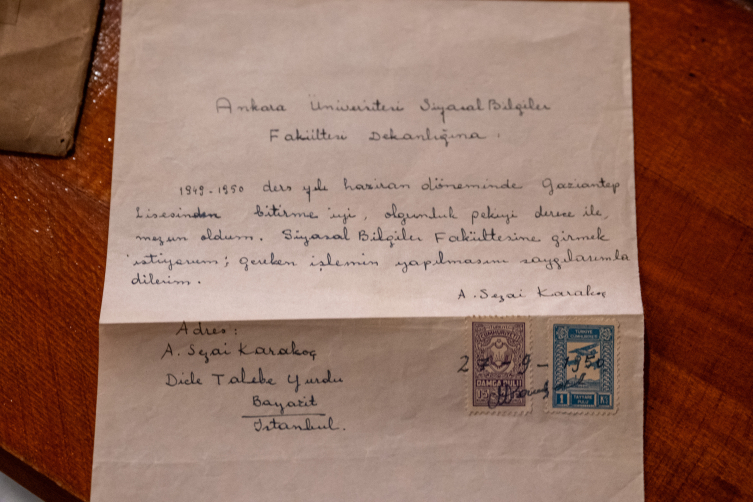 Ankara Üniversitesi Siyasal Bilgiler
Fakültesi Dekanlığına.
1949-1950 ders yılı haziran döneminde Gaziantep
Lisesinden bitirme iyi, olgunluk pekiyi derece ile,
mezun oldum. Siyasal Bilgiler Fakültesine girmek
istiyorum; gereken işlemin yapılmasını saygılarımla
dilerim.
A. Sezai Karakoç
Adres:
A. Sezai Karakoç
Dicle Talebe Yurdu
Bayazıt
İstanbul.
27-9-1950
TÜRKİYE CUMHURİYETİ
DAMGA PULU
15
TÜRKİYE
CUMHURİYETİ
TAYYARE
PULU
1 Kş